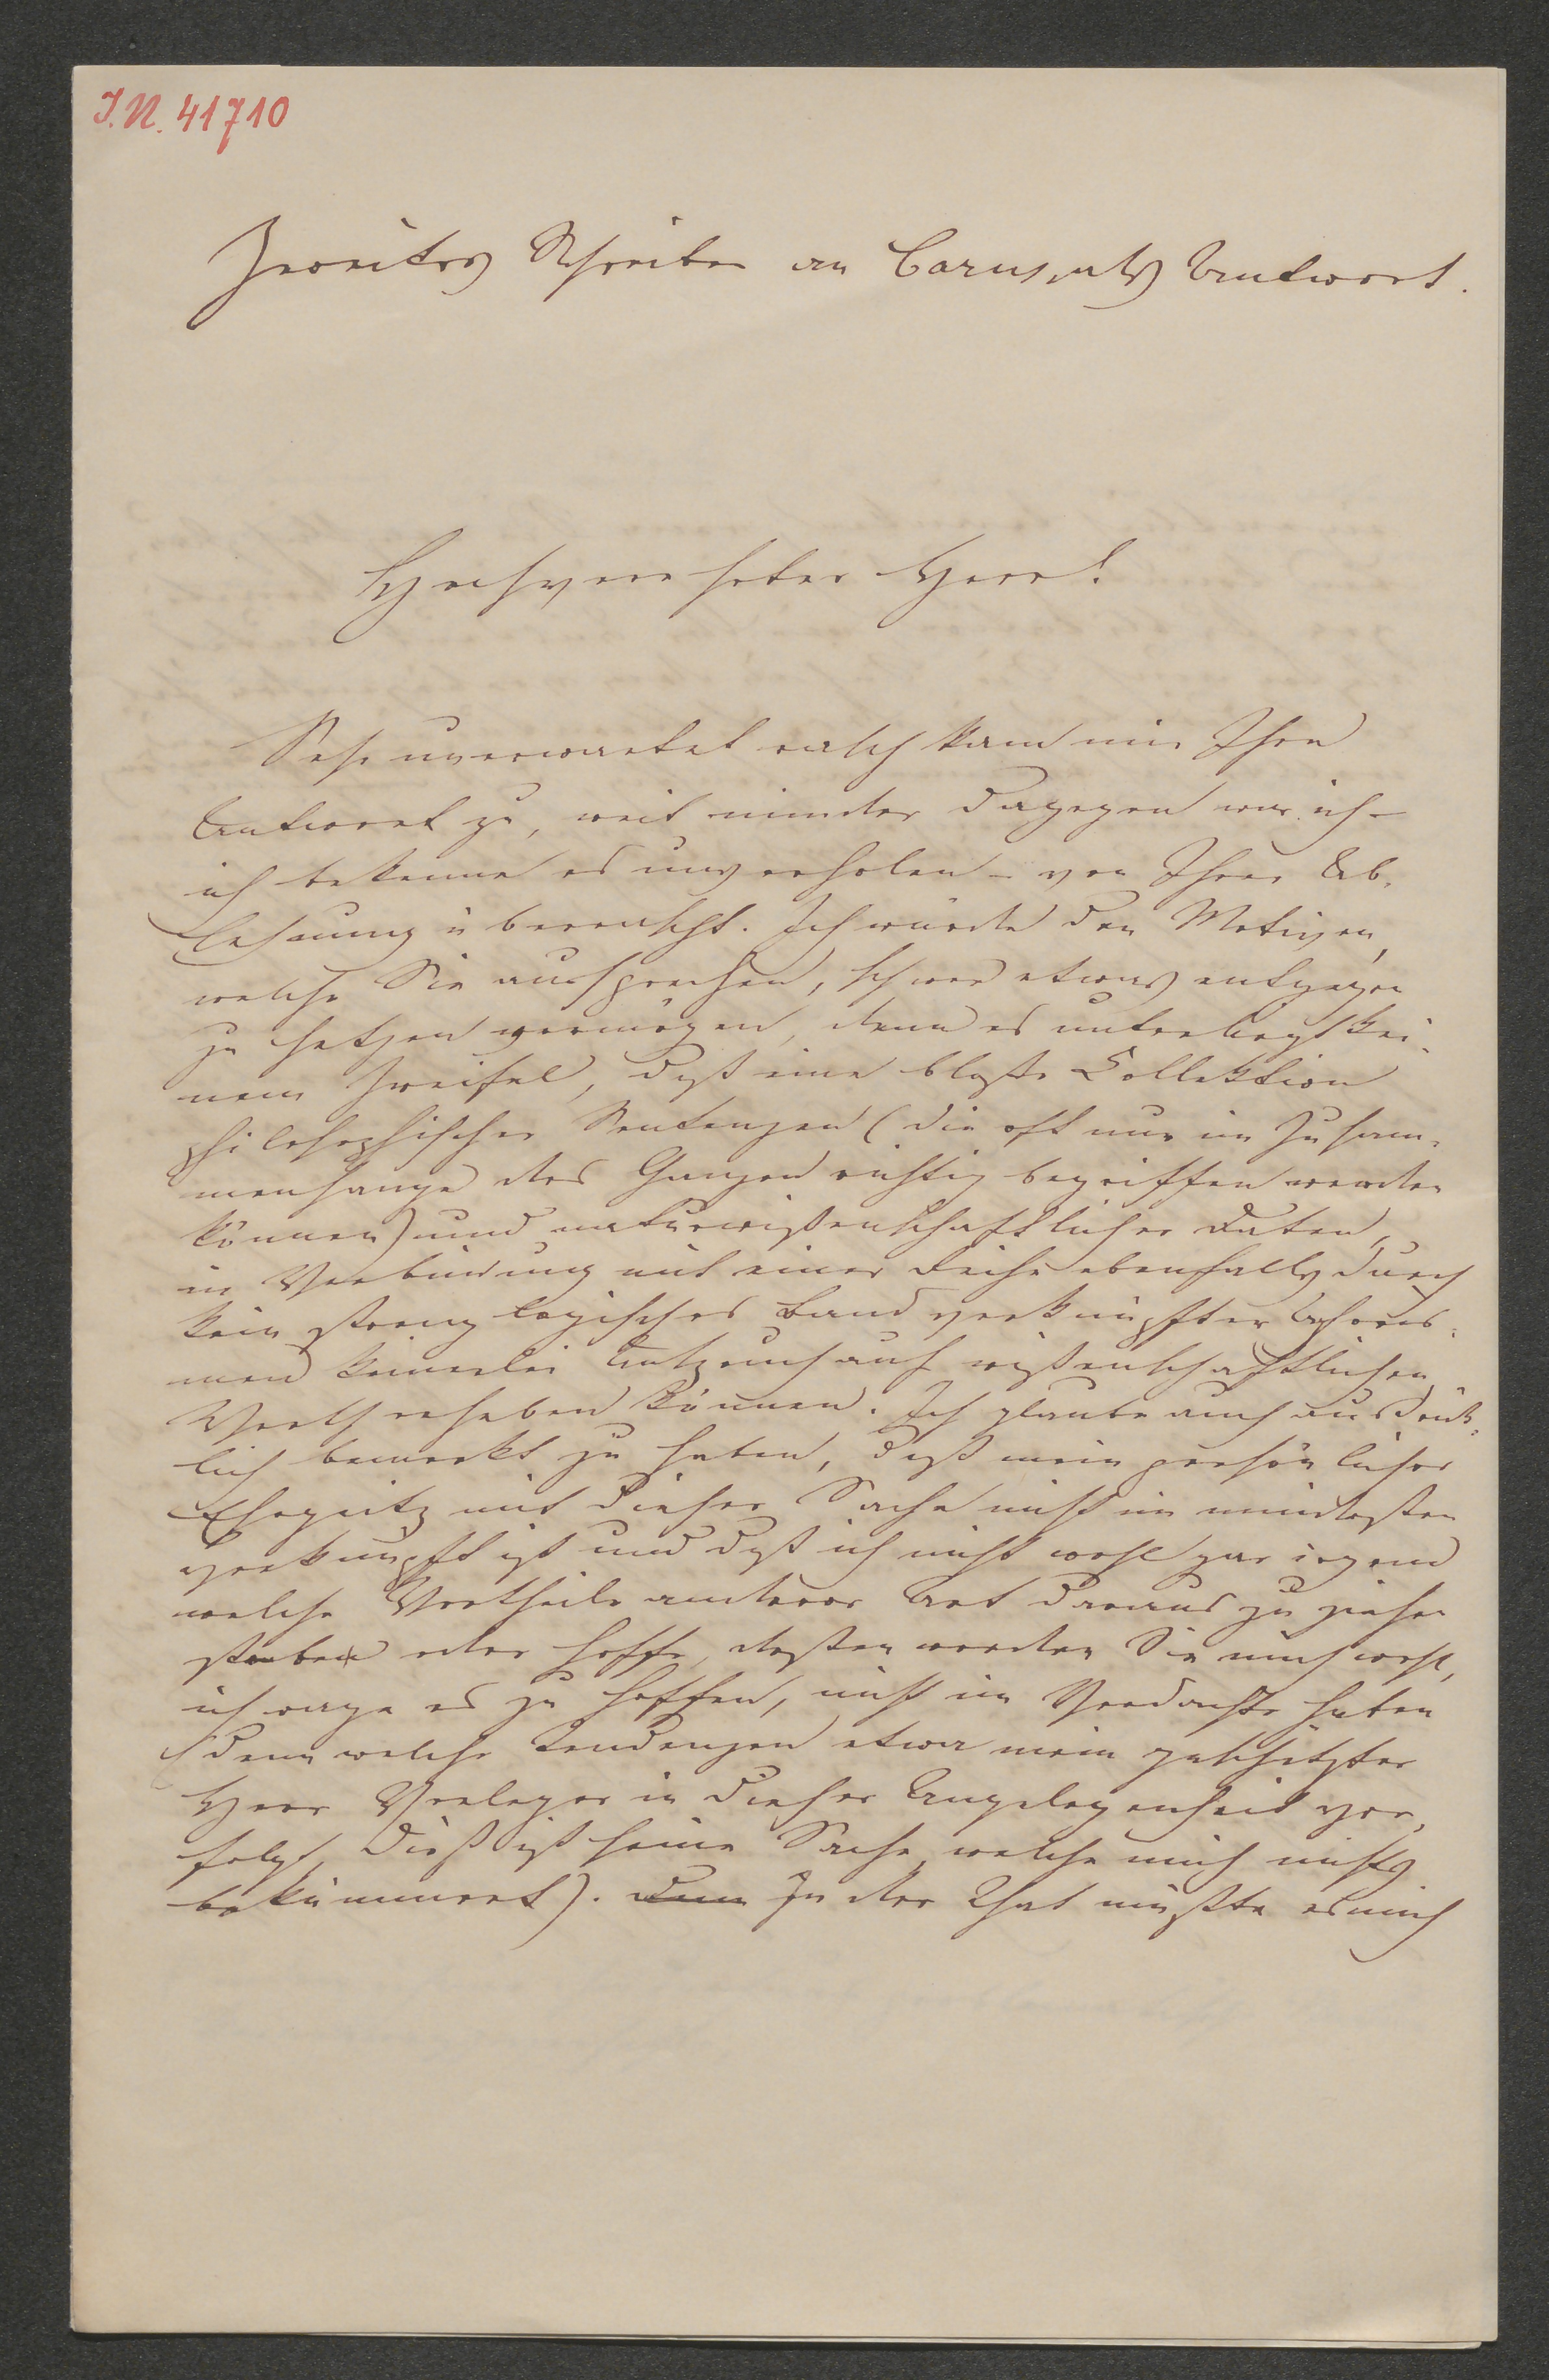 I.N. 41710
Zweites Schreiben an Carus, als Antwort.
Hochverehrter Herr!
Sehr unerwartet rasch kam mir Ihre
Antwort zu, weit minder dagegen war ich –
ich bekenne es unverholen – von Ihrer Ab-
lehnung überrascht. Ich würde den Motiven,
welche Sie aussprechen, schwer etwas entgegen
zu setzen vermögen, denn es unterliegt kei-
nem Zweifel, daß eine bloße Collektion
philosophischer Sentenzen (die oft nur im Zusam-
menhange des Ganzen richtig begriffen werden
können) und naturwißenschaftlicher Daten,
in Verbindung mit einer Reihe ebenfalls durch
kein streng logisches Band verknüpfter Aphoris-
men keinerlei Anspruch auf wißenschaftlichen
Werth erheben können. Ich glaube auch ausdrük-
lich bemerkt zu haben, daß mein persönlicher
Ehrgeitz mit dieser Sache nicht im mindesten
verknüpft ist und daß ich nicht wohl gar irgend
welche Vortheile anderer Art daraus zu ziehen
strebe oder hoffe, deßen werden Sie mich wohl,
ich wage es zu hoffen, nicht im Verdachte haben
(denn welche Tendenzen etwa mein geschätzter
Herr Verleger in dieser Angelegenheit ver-
folgt, dieß ist seine Sache, welche mich nichts
bekümmert). Denn In der That müßte es mich